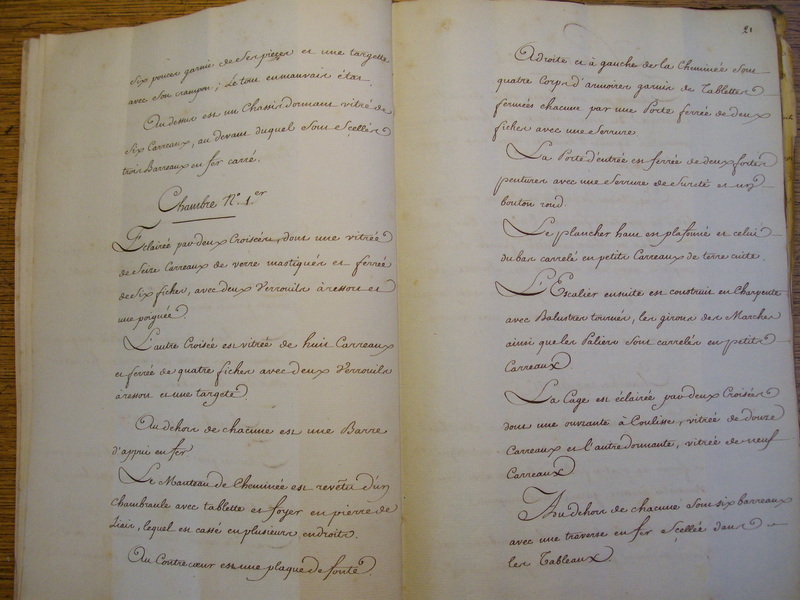 six pouces garnie de ses pezzes et une targette
avec son crampon; Le tout en mauvais état.
Au dessus est un Chassis dormant vitré de
six Carreaux, au devant duquel sont scellés
trois Barreaux en fer carré.
Chambre N.º 1.er
Eclairée par deux Croisées, dont une vitrée
de seize Carreaux de verre mastiqués et ferrée
de six fiches, avec deux verrouils à ressort et
une poignée.
L'autre Croisée est vitrée de huit Carreaux
et ferrée de quatre fiches avec deux Verrouils
à ressort et une targete.
Au dehors de chacune est une Barre
d'appui en fer
Le Manteau de Cheminée est revêtu d'un
Chambranle avec tablette et foyer en pierre de
Liais, lequel est cassé en plusieurs endroits.
Au Contrecœur est une plaque de fonte.
21
A droite et à gauche de la Cheminée sont
quatre Corps d'armoires garnis de Tablettes
fermées chacune par une Porte ferrée de deux
fiches avec une serrure
La Porte d'entrée est ferrée de deux fortes
pentures avec une serrure de sureté et un
bouton rond.
Le plancher haut est plafonné et celui
du bas carrelé en petits Carreaux de terre cuite.
L'Escalier ensuite est construit en Charpente
avec Balustres tournés, les girons des Marches
ainsi que les Paliers sont carrelés en petits
Carreaux
La Cage est éclairée par deux Croisées
dont une ouvrante à Coulisse, vitrée de douze
Carreaux et l'autre dormante, vitrée de neuf
Carreaux
Au dehors de chacune sont six barreaux
avec une traverse en fer scellée dans
les Tableaux.